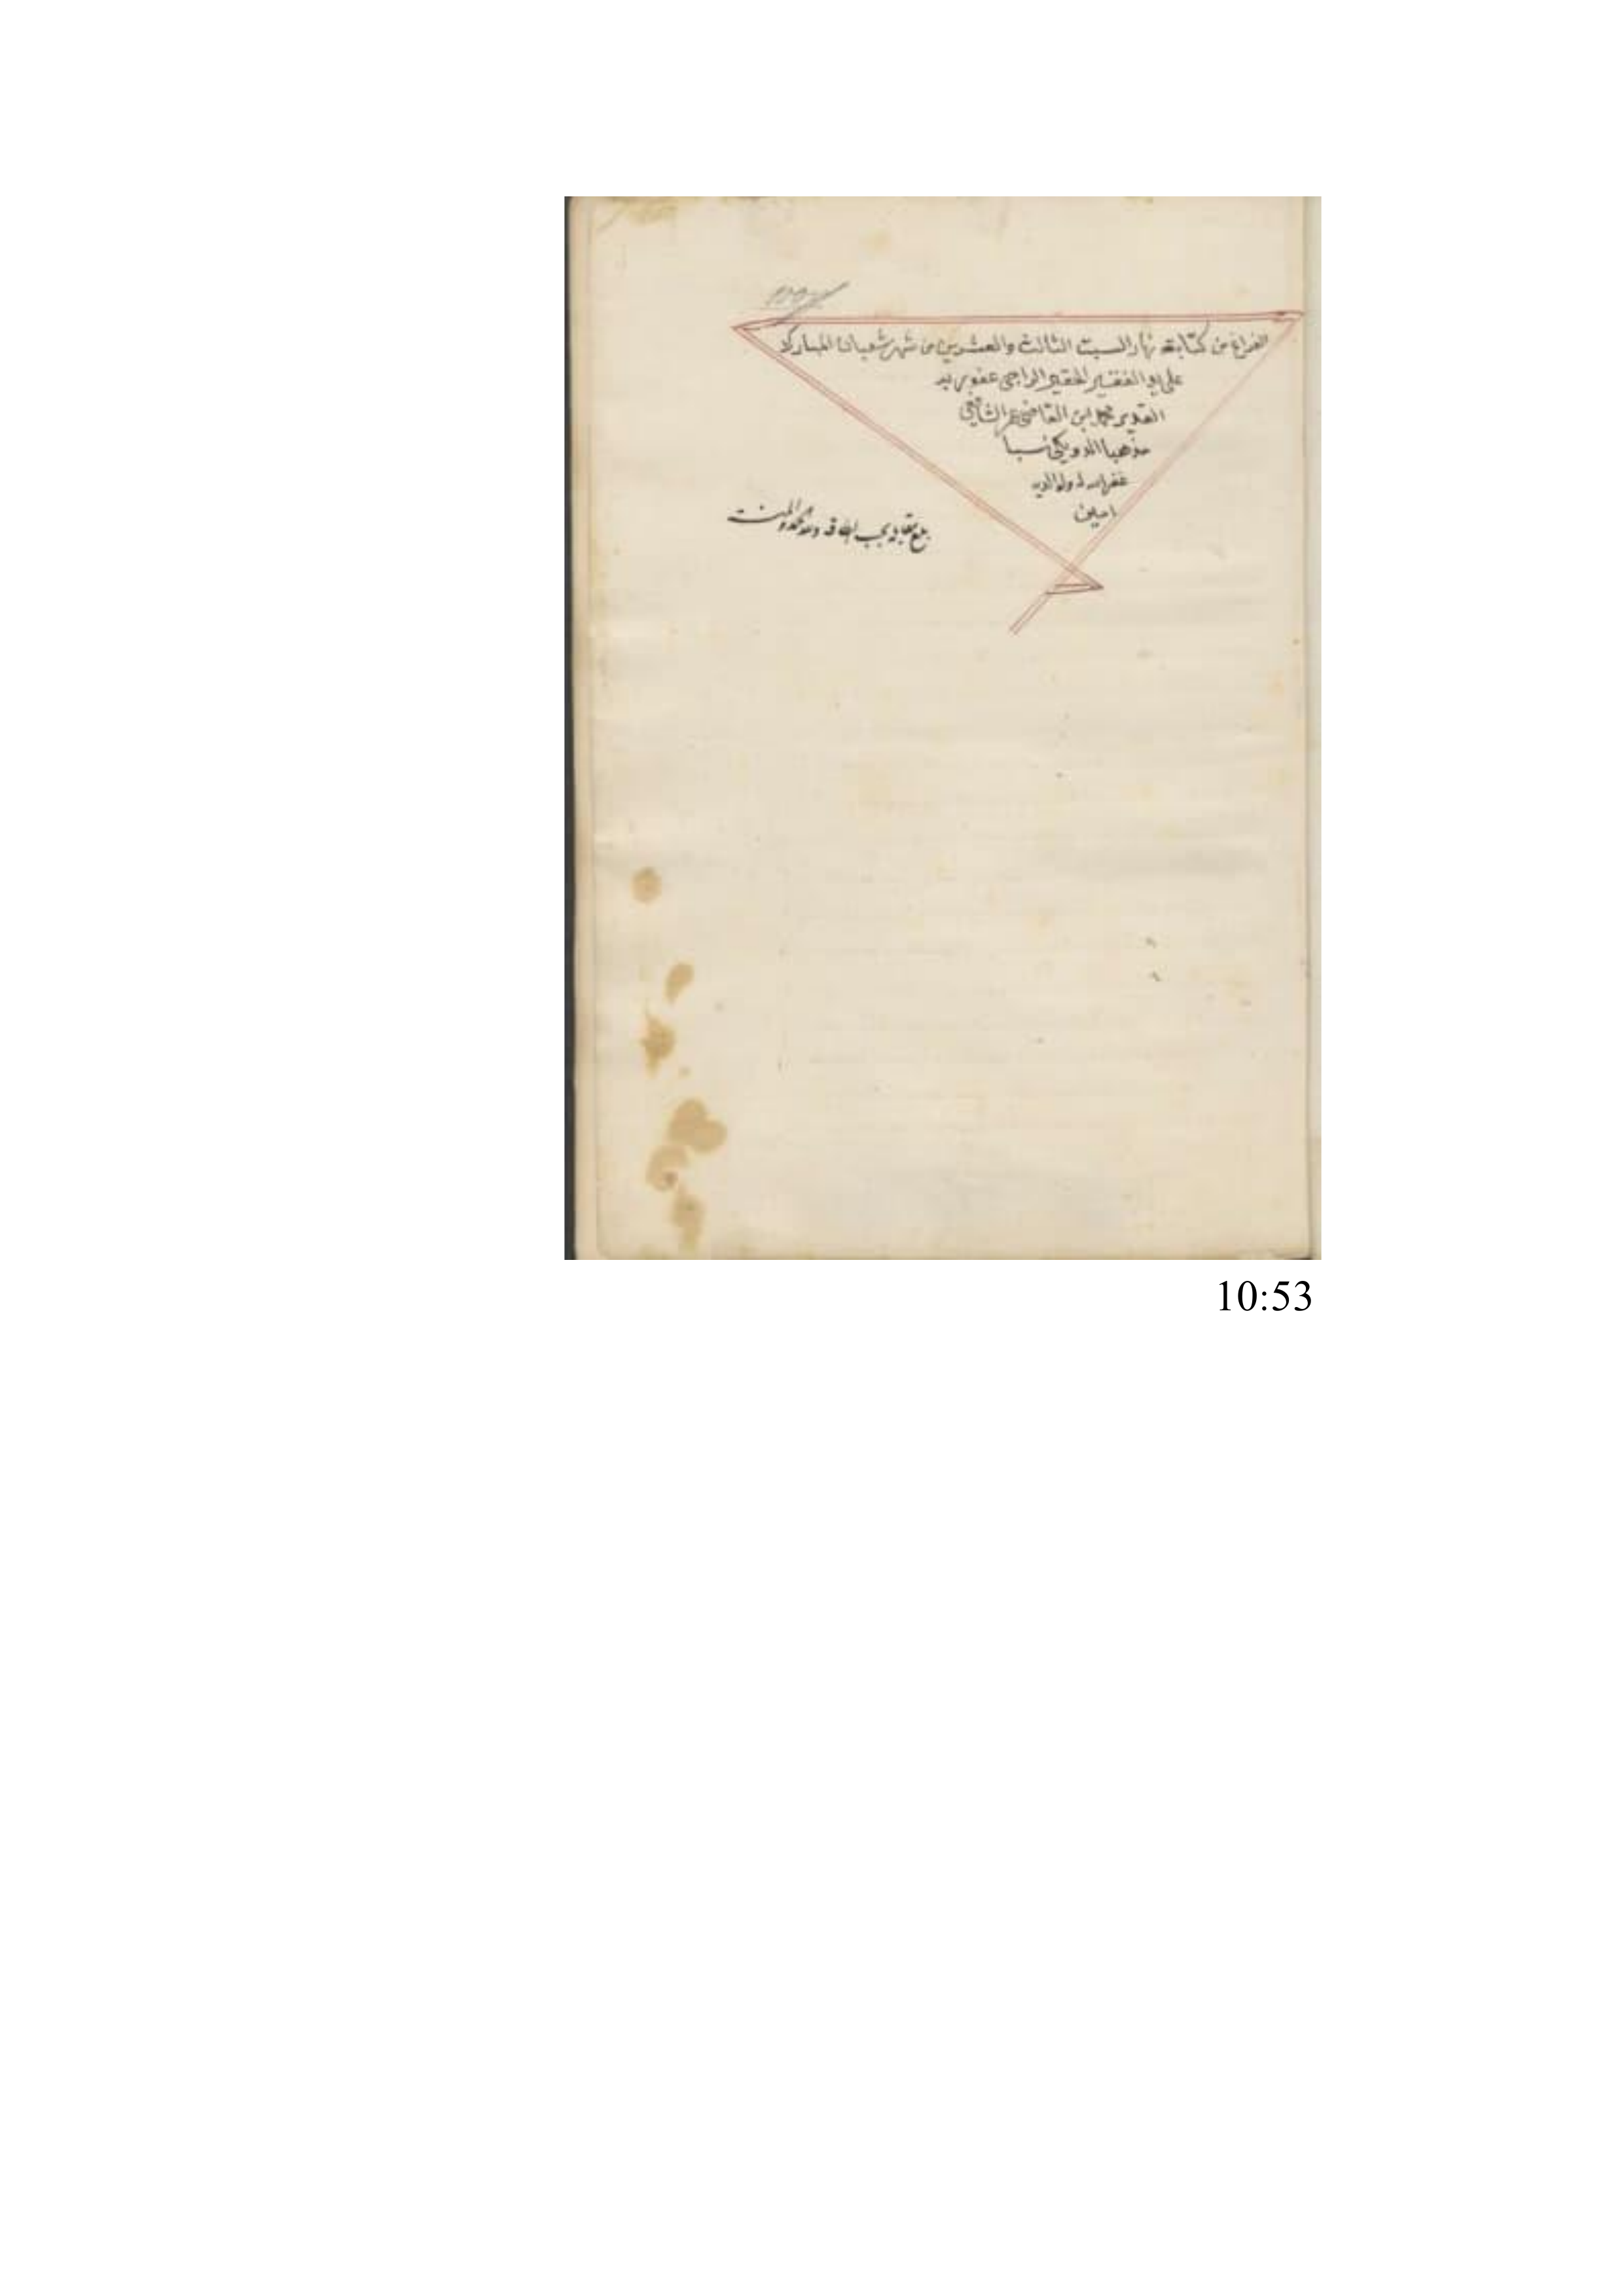 الفراغ من كتابته نهار السبت الثالث والعشرين من شهر شعبان المبارك
على يد الفقير الحقير الراجي عفو ربه
القدير محمد ابن القاضي عمر الشافعي
مذهبا الدويكي نسبا
غفر الله له ولوالديه
امين
بلغ مقابلة بحسب الطاقة ولله الحمد والمنة
10:53